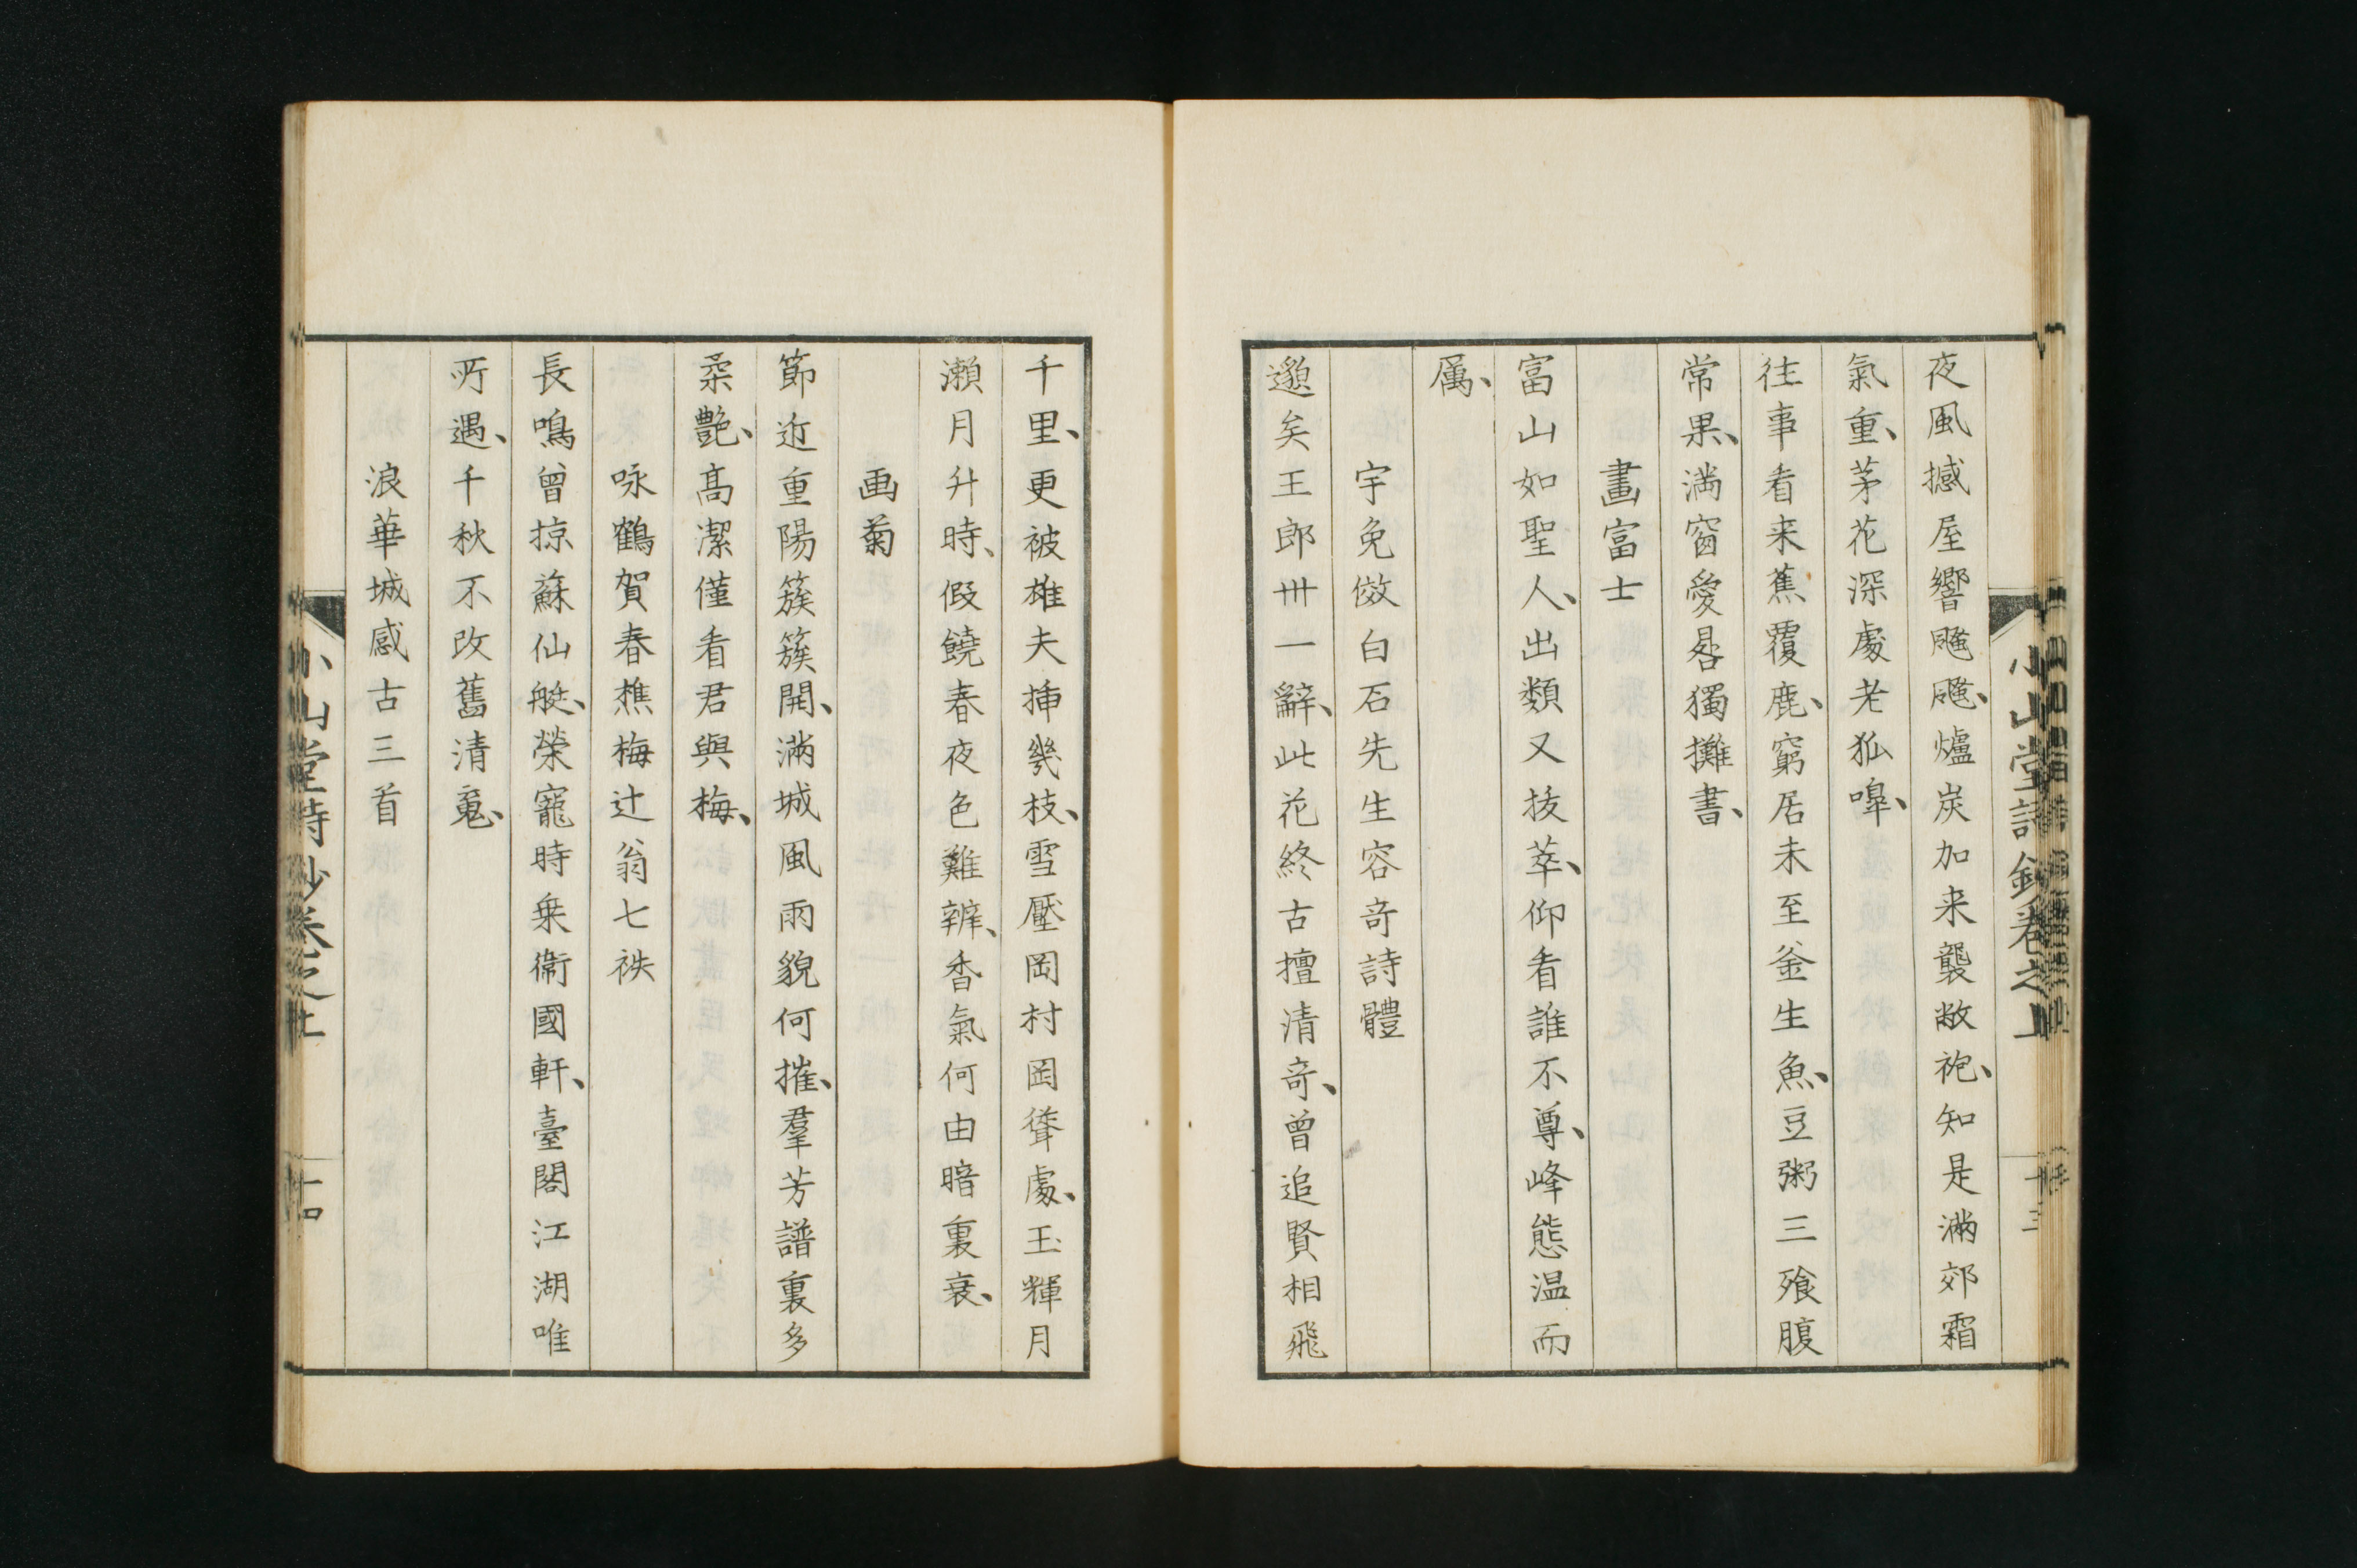 夜風撼屋響颼颼、爐炭加来襲敝袍、知是滿郊霜
氣重、茅花深處老狐嘷、
往事看来蕉覆鹿、窮居未至釜生魚、豆粥三飱腹
常果、満窗愛晷獨攤書、
畫富士
富山如聖人、出類又抜萃、仰看誰不尊、峰態温而
厲、
宇免傚白石先生容奇詩體
邈矣王郎卅一辭、此花終古擅清奇、曾追賢相飛
千里、更被雄夫挿幾枝、雪壓岡村岡聳處、玉輝月
瀬月升時、假饒春夜色難辨、香氣何由暗裏衰、
画菊
節近重陽簇簇開、滿城風雨貌何摧、羣芳譜裏多
柔艶、高潔僅看君與梅、
咏鶴賀春樵梅辻翁七袟
長鳴曾掠蘇仙艇、榮寵時乗衞國軒、臺閣江湖唯
所遇、千秋不改舊清䰟、
浪華城感古三首
小山堂詩鈔卷之上
十三
小山堂詩鈔卷之上
十四